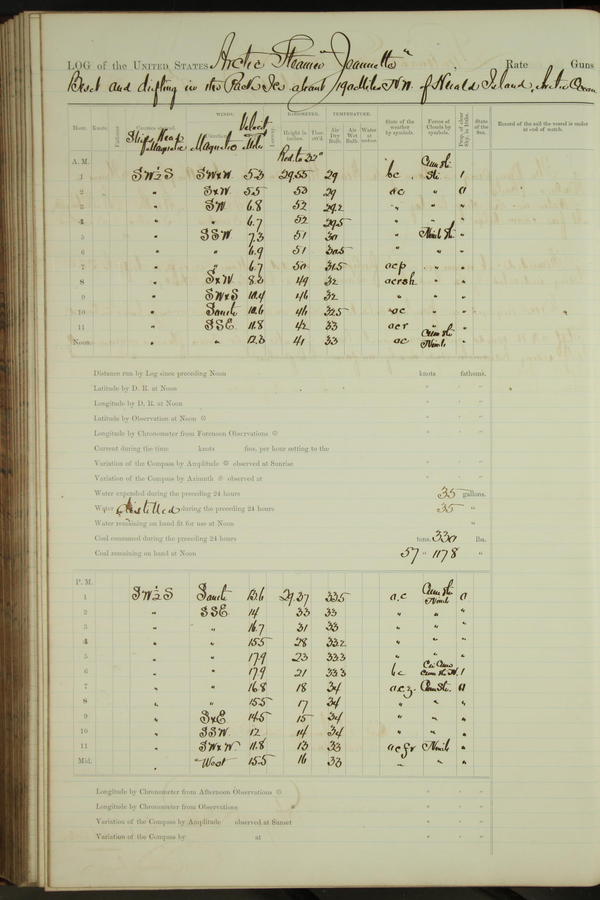 LOG of the UNITED STATES Arctic Steamer "Jeannette" Rate Guns
Beset and drifting in the Pack Ice about 190 Miles NW. of Herald Island, Arctic Ocean
WINDS. BAROMETER. TEMPERATURE.
Hour. Knots. Ship's Head Magnetic Magnetic Velocity Miles Leeway Height in inches. Air Dry Bulb. Air Wet Bulb. Water at surface. State of the weather by symbols. Forms of Clouds by symbols. Prop. of clear Sky, in 10ths. State of the Sea. Record of the sail the vessel is under at end of watch.
A. M. Red. to 32°
1 SW½S SWxW 5.3 29.55 29 bc Cum Sti. 1
2 " SxW 5.5 53 29 oc " 0
3 " SW 6.8 52 29.2 " " "
4 " " 6.7 52 29.5 " " "
5 " SSW 7.3 51 30 " Nimb Sti. "
6 " " 6.9 51 30.5 " " "
7 " " 6.7 50 31.5 ocp " "
8 " SxW 8.3 49 32 " "
9 " SWxS 10.4 46 32 " " "
10 " South 10.6 46 32.5 oc " "
11 " SSE 11.8 42 33 ocr " "
Noon. " " 12.3 41 33 oc Cum Sti. Nimb. "
Distance run by Log since preceding Noon knots fathoms.
Latitude by D. R. at Noon ° ' "
Longitude by D. R. at Noon ° ' "
Latitude by Observation at Noon ° ' "
Longitude by Chronometer from Forenoon Observations ° ' "
Current during the time knots fms. per hour setting to the
Variation of the Compass by Amplitude observed at Sunrise ° ' "
Variation of the Compass by Azimuth observed at ° ' "
Water expended during the preceding 24 hours 35 gallons.
Water distilled during the preceding 24 hours 35 "
Water remaining on hand fit for use at Noon "
Coal consumed during the preceding 24 hours tons. 330 lbs.
Coal remaining on hand at Noon 57 " 1178 "
P. M.
1 SW½S South 13.6 29.37 33.5 o.c Cum Sti. Nimb 0
2 " SSE 14 33 33 " " "
3 " " 16.7 31 33 " " "
4 " " 15.5 28 33.2 " " "
5 " " 17.9 23 33.3 " " "
6 " " 17.9 21 33.3 bc 1
7 " " 16.8 18 34 ocz. Cum Sti. 0
8 " " 15.5 17 34 " " "
9 " SxE 14.5 15 34 " " "
10 " SSW 12 14 34 " " "
11 " SWxW 11.8 13 33 Nimb "
Mid. " West 15.5 16 33 " " "
Longitude by Chronometer from Afternoon Observations ° ' "
Longitude by Chronometer from Observations ° ' "
Variation of the Compass by Amplitude observed at Sunset ° ' "
Variation of the Compass by at ° ' "